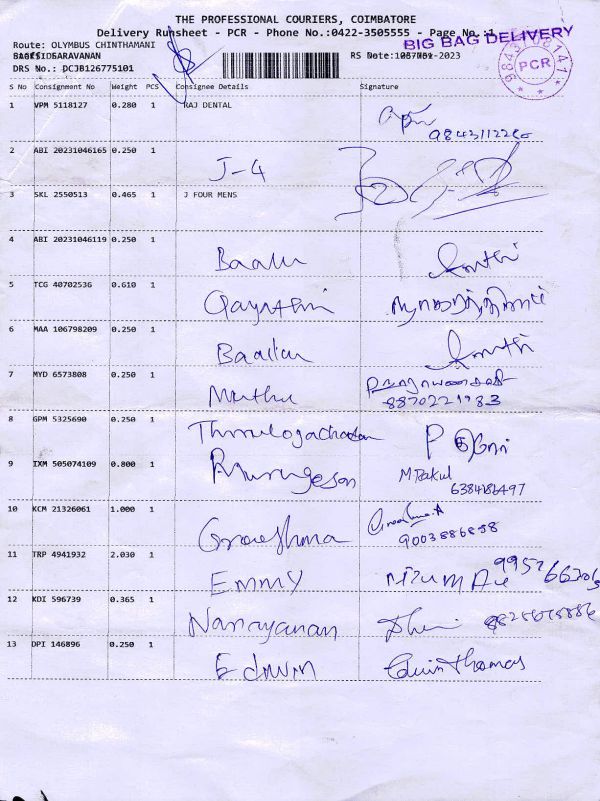 THE PROFESSIONAL COURIERS, COIMBATORE
Delivery Runsheet - PCR - Phone No.:0422-3505555 - Page No.:
BIG BAG DELIVERY
Route: OLYMBUS CHINTHAMANI
SARAVANAN RS Date:
DRS No.: DCJB126775101
PCR
S No Consignment No Weight PCS Consignee Details Signature
1 VPM 5118127 0.280 1 RAJ DENTAL
2 ABI 20231046165 0.250 1 J-4
3 SKL 2550513 0.465 1 J FOUR MENS
4 ABI 20231046119 0.250 1 Baalu
5 TCG 40702536 0.610 1 Gayathri
6 MAA 106798209 0.250 1 Baalu
7 MYD 6573808 0.250 1 Muthu
8870221983
8 GPM 5325690 0.250 1 Thirulogachandan
9 IXM 505074109 0.800 1 R.Murugesan
10 KCM 21326061 1.000 1 Greeshma
11 TRP 4941932 2.030 1 EMMY
12 KDI 596739 0.365 1 Narrayanan
13 DPI 146896 0.250 1 Edwin Edwin Thomas